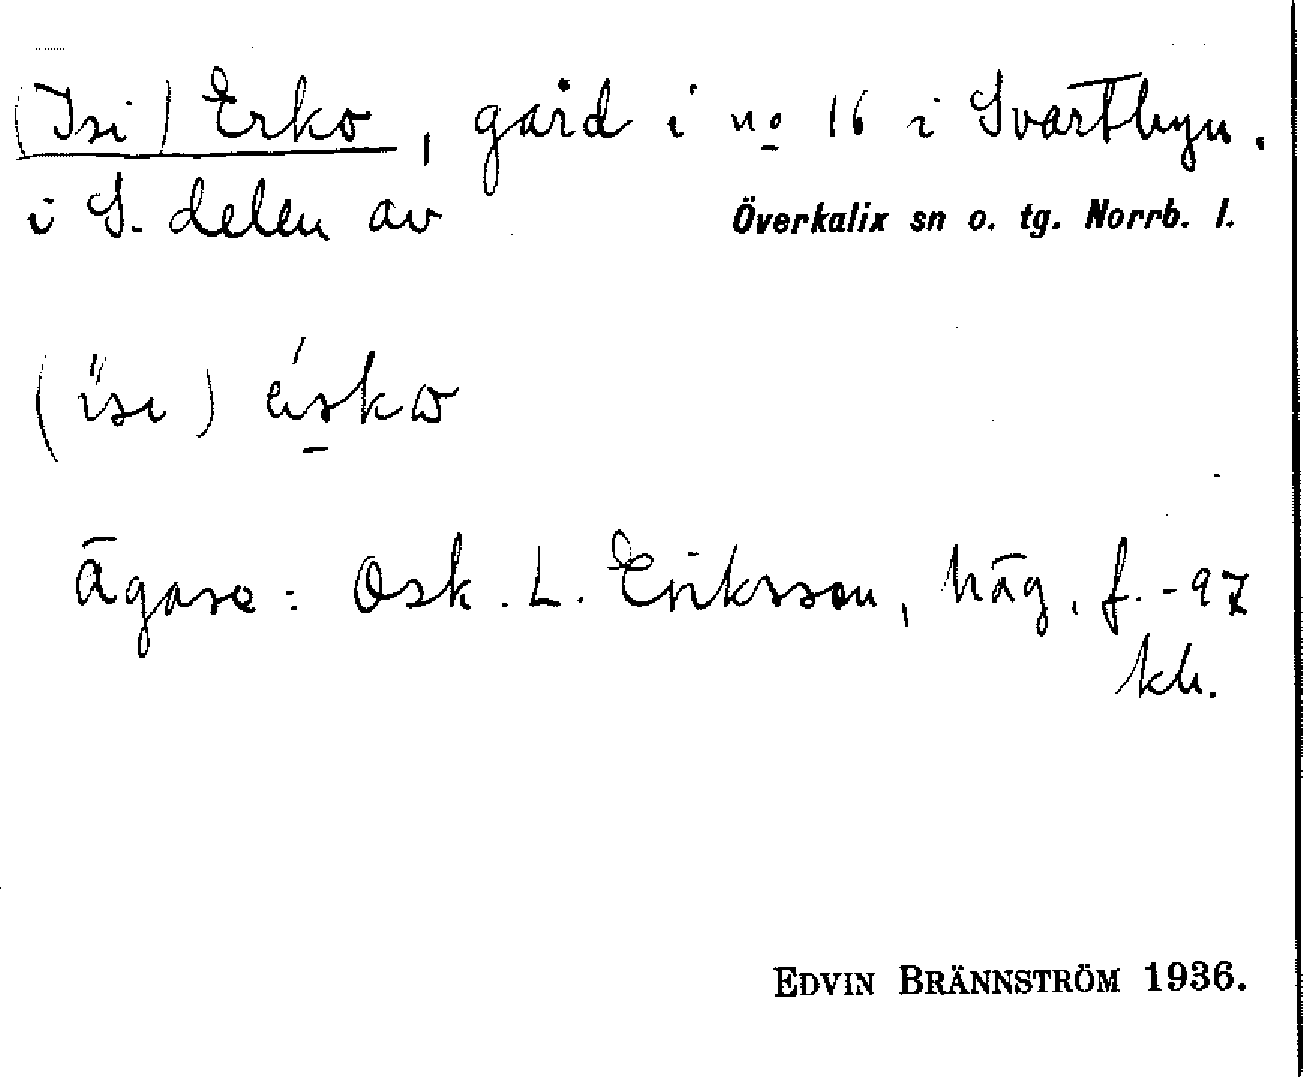 (Isi) Erko, gård i no 16 i Svartbyn.
i S. delen av
Överkalix sn o. tg. Norrb. l.
(ïsi)
Ägare: Osk. L. Eriksson, häg. f. -97
kh.
EDVIN BRÄNNSTRÖM 1936.